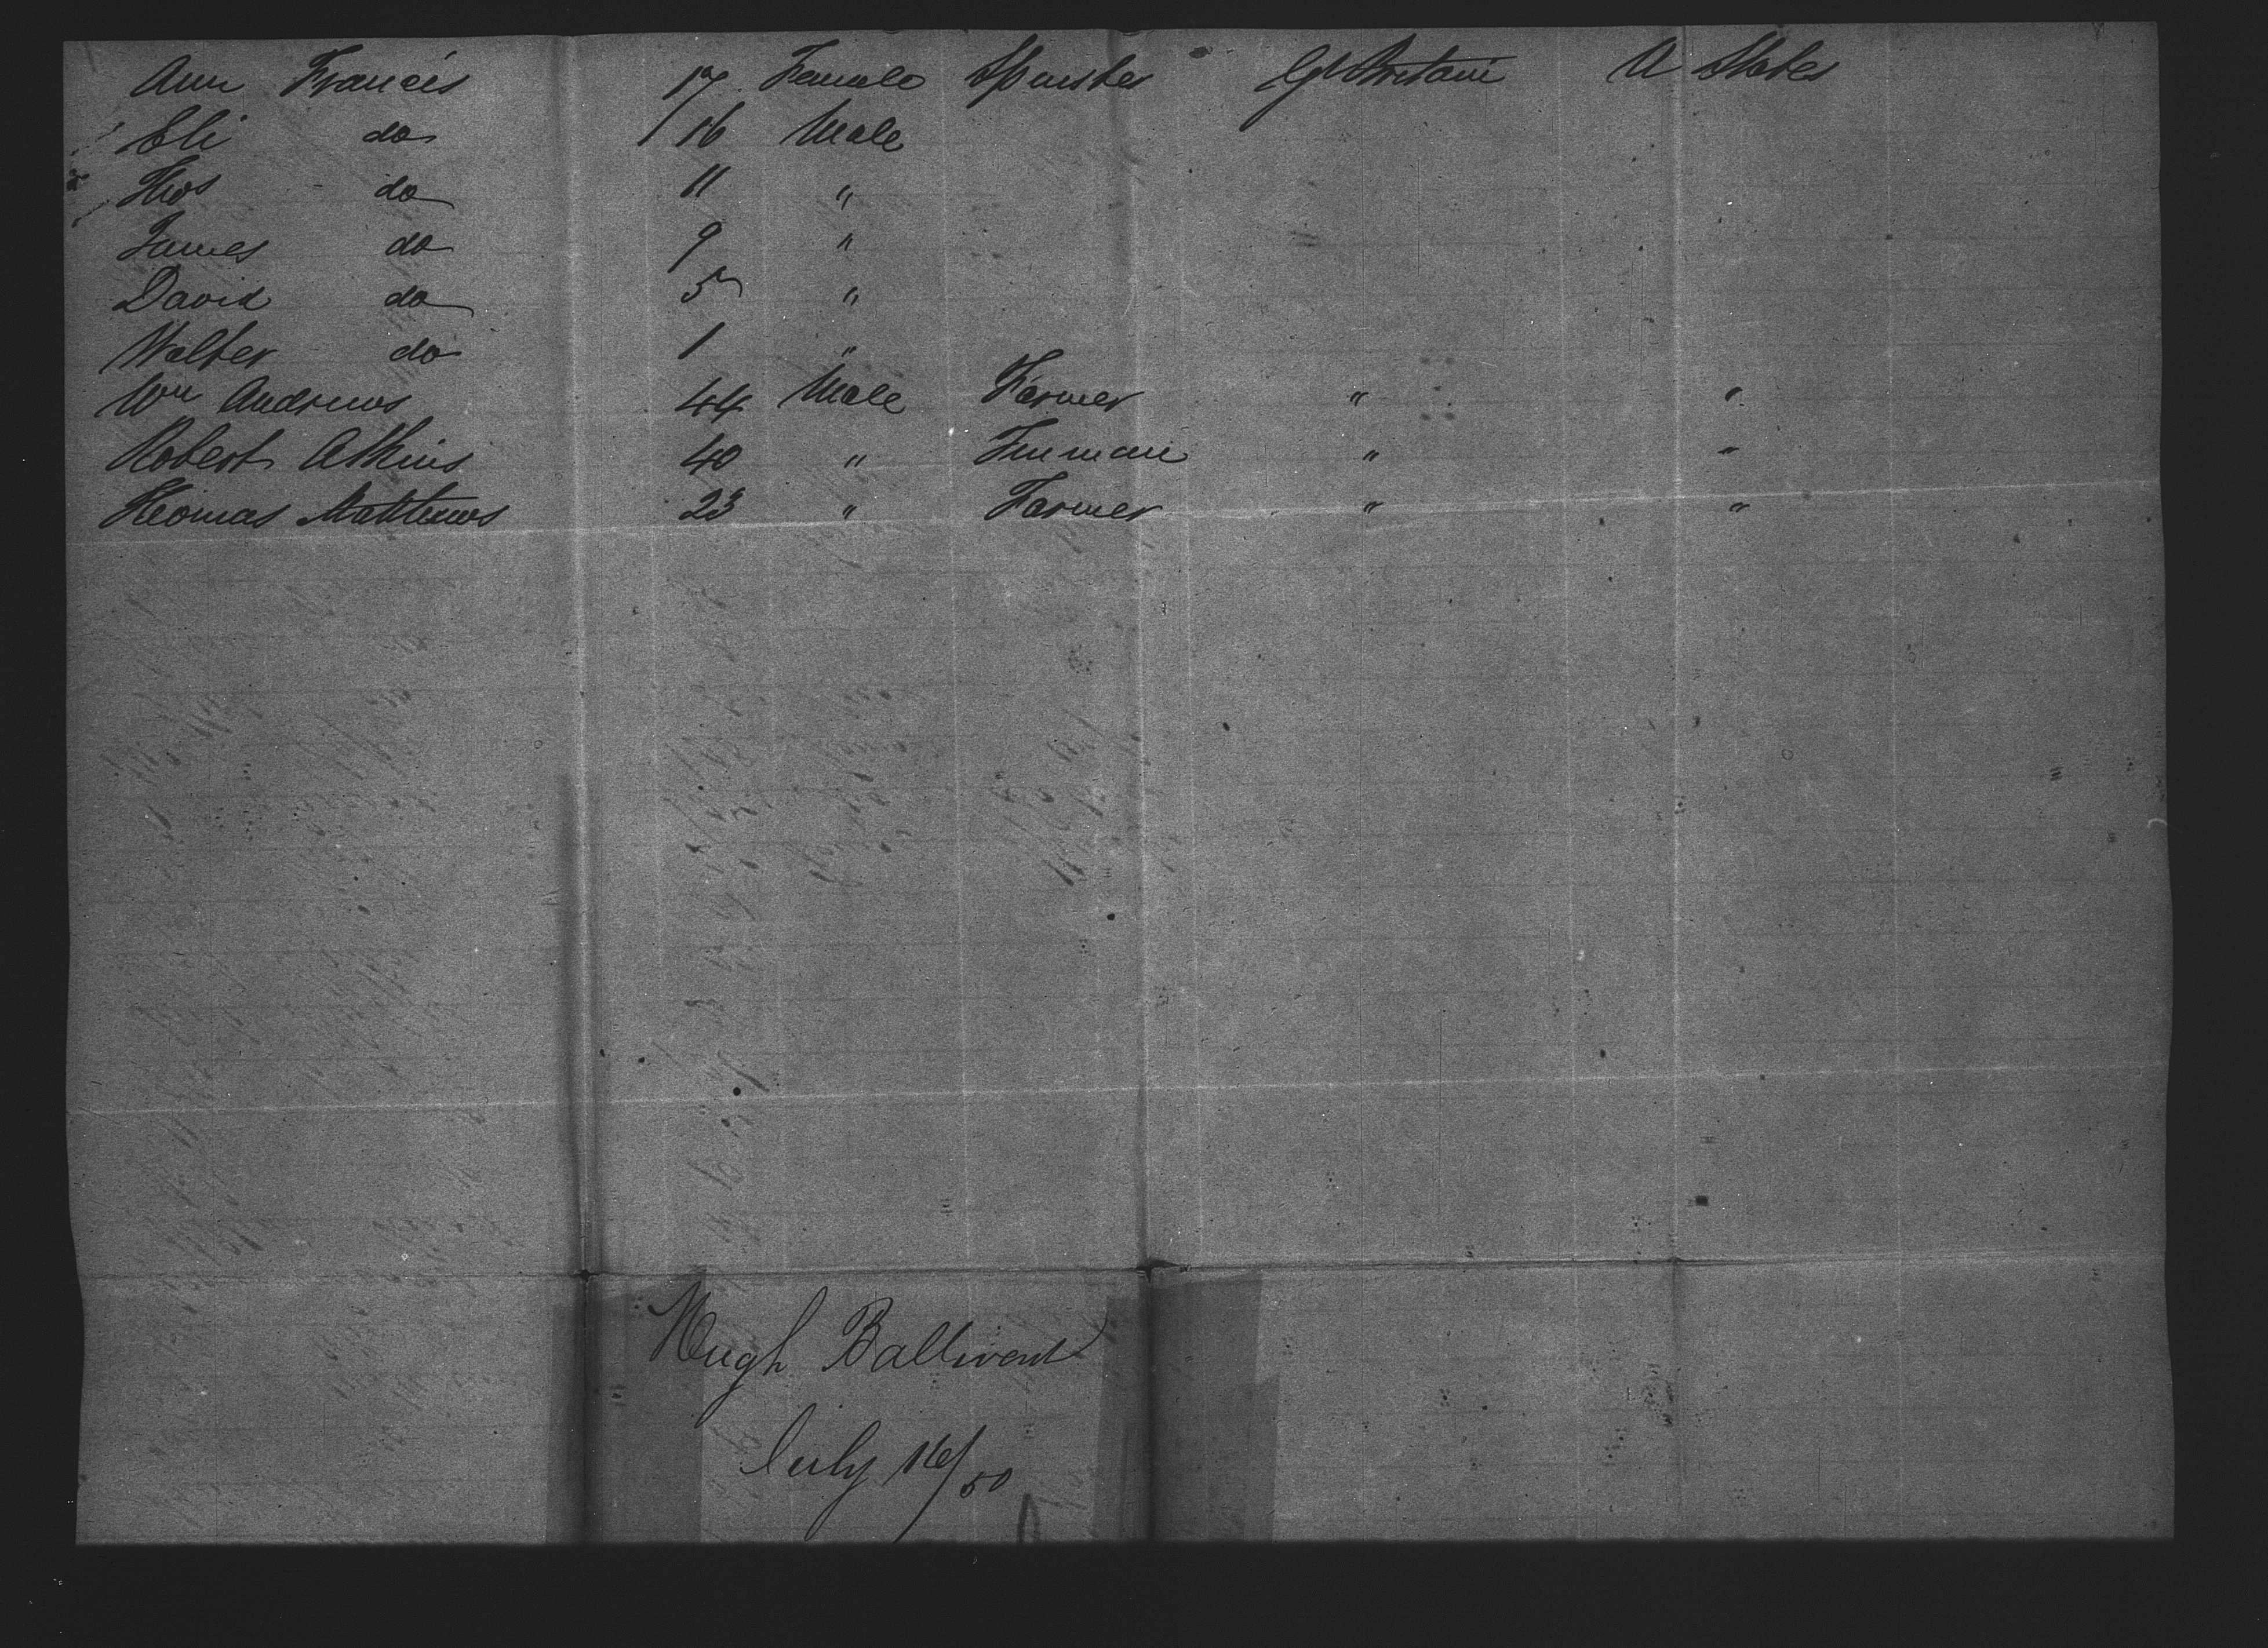 Ann Francis 17 Female Spinster Gt Britain U States
Eli do 16 Male
Thos do 11 "
James do 9 "
David do 5 "
Walter do 1 "
Wm Andrews 44 Male Farmer " "
Robert Atkins 40 " " "
Thomas Matthews 23 " Farmer " "
Hugh
July 16/50